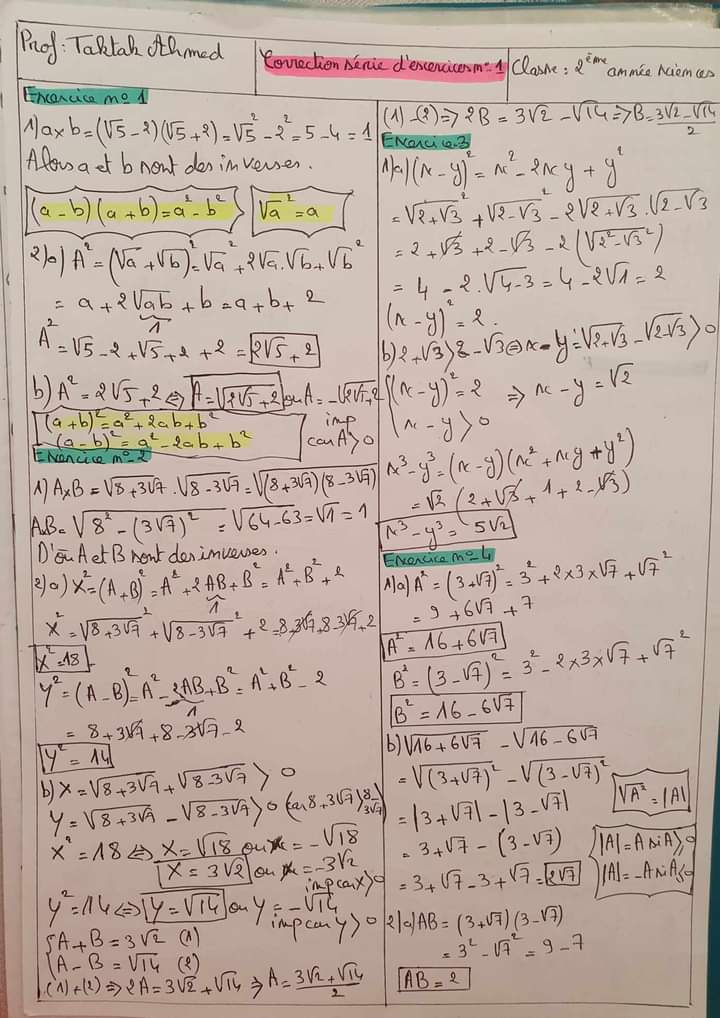 Prof: Taktak Ahmed
Correction série d'exercices n° 1
Classe: 2ème année sciences
Exercice n° 1
1) a x b = (√5 - 2)(√5 + 2) = √5² - 2² = 5 - 4 = 1
Alors a et b sont des inverses.
(a - b)(a + b) = a² - b²
√a² = a
2) a) A² = (√a + √b)² = √a² + 2√a.√b + √b²
= a + 2√ab + b = a + b + 2
1
A² = √5 - 2 + √5 + 2 + 2 = 2√5 + 2
b) A² = 2√5 + 2 ⇔ A = √2√5 + 2 ou A = -√2√5 + 2
imp
car A > 0
(a + b)² = a² + 2ab + b²
(a - b)² = a² - 2ab + b²
Exercice n° 2
1) A x B = √8 + 3√7 . √8 - 3√7 = √(8 + 3√7)(8 - 3√7)
AxB = √8² - (3√7)² = √64 - 63 = √1 = 1
D'où A et B sont des inverses.
2) a) X² = (A + B)² = A² + 2AB + B² = A² + B² + 2
1
X² = √8 + 3√7² + √8 - 3√7² + 2 = 8 + 3√7 + 8 - 3√7 + 2
X² = 18
Y² = (A - B)² = A² - 2AB + B² = A² + B² - 2
1
= 8 + 3√7 + 8 - 3√7 - 2
Y² = 14
b) X = √8 + 3√7 + √8 - 3√7 > 0
Y = √8 + 3√7 - √8 - 3√7 > 0 (car 8 + 3√7 > 8 - 3√7
X² = 18 ⇔ X = √18 ou X = -√18
X = 3√2 ou X = -3√2
imp car X > 0
Y² = 14 ⇔ Y = √14 ou Y = -√14
imp car Y > 0
{A + B = 3√2 (1)
{A - B = √14 (2)
(1) + (2) ⇒ 2A = 3√2 + √14 ⇒ A = 3√2 + √14 / 2
(1) - (2) ⇒ 2B = 3√2 - √14 ⇒ B = 3√2 - √14 / 2
Exercice 3
1) a) (x - y)² = x² - 2xy + y²
= √2 + √3² + √2 - √3² - 2√2 + √3 . √2 - √3
= 2 + √3 + 2 - √3 - 2(√2² - √3²)
= 4 - 2.√4 - 3 = 4 - 2√1 = 2
(x - y)² = 2.
b) 2 + √3 > 2 - √3 ⇔ x - y = √2 + √3 - √2 - √3 > 0
{(x - y)² = 2 ⇒ x - y = √2
{x - y > 0
x³ - y³ = (x - y)(x² + xy + y²)
= √2 (2 + √3 + 1 + 2 - √3)
x³ - y³ = 5√2
Exercice n° 4
1) a) A² = (3 + √7)² = 3² + 2 x 3 x √7 + √7²
= 9 + 6√7 + 7
A² = 16 + 6√7
B² = (3 - √7)² = 3² - 2 x 3 x √7 + √7²
B² = 16 - 6√7
b) √16 + 6√7 - √16 - 6√7
= √(3 + √7)² - √(3 - √7)²
√A² = |A|
= |3 + √7| - |3 - √7|
= 3 + √7 - (3 - √7)
|A| = A si A ≥ 0
|A| = -A si A ≤ 0
= 3 + √7 - 3 + √7 = 2√7
2) a) AB = (3 + √7)(3 - √7)
= 3² - √7² = 9 - 7
AB = 2